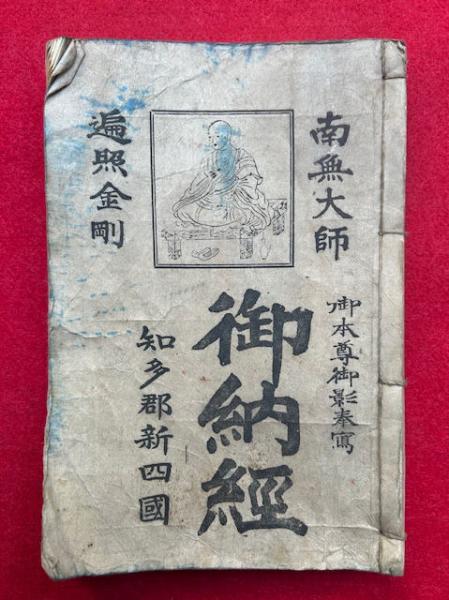 南無大師
遍照金剛
御本尊御影奉寫
御納經
知多郡新四國